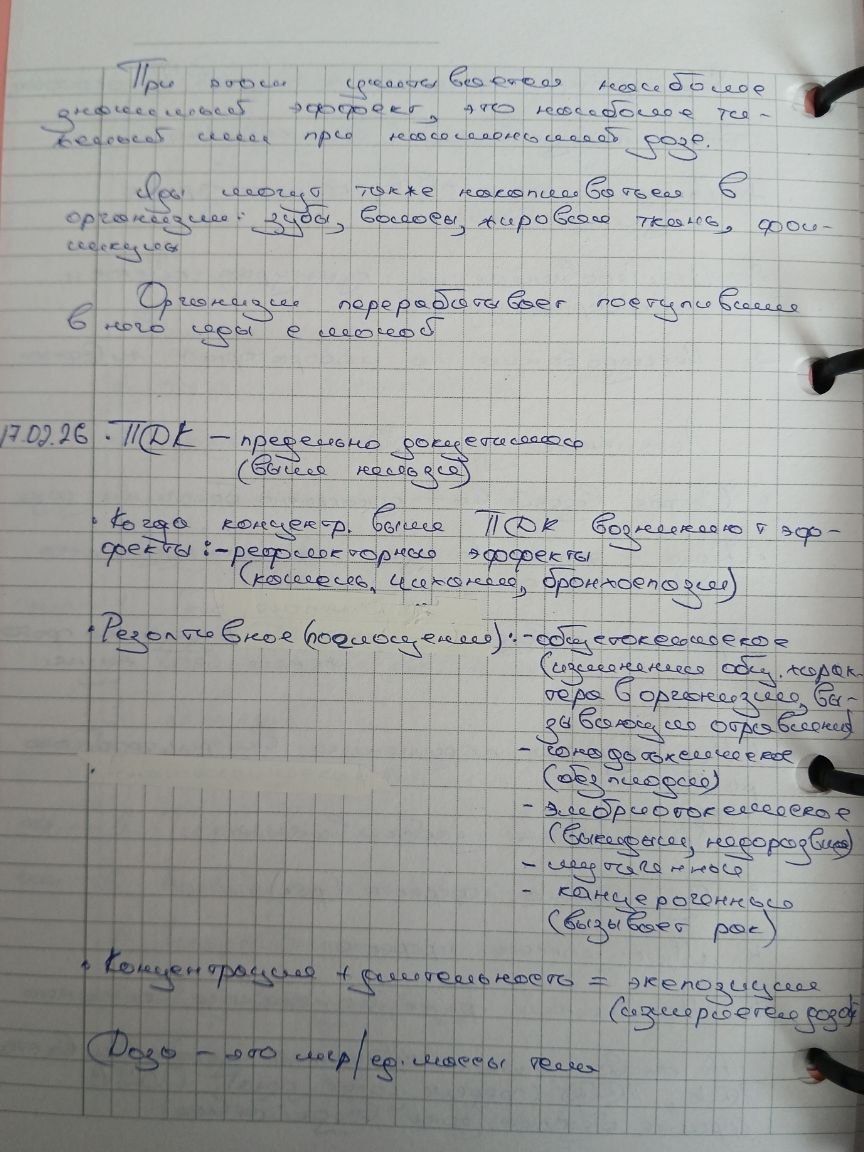 При этом учитывается наиболее
значимый эффект, это наиболее тя-
желый при дозе.
Яды могут также накапливаться в
организме: зубы, волосы, жировая ткань,
Организм перерабатывает поступившие
в него яды с мочой
17.02.26 · ПДК – предельно допустимая
(выше нельзя)
· Когда концентр. выше ПДК возникают эф-
фекты: - рефлекторные эффекты
(кашель, чихание, бронхоспазм)
· Резоптивное (поглощение): - общетоксическое
(изменение общ. харак-
тера в организме, вы-
зывающие отравления)
- гонадотоксическое
(безплодие)
- эмбриотоксическое
(выкидыши, недоразвит)
- мутагенные
- канцерогенные
(вызывает рак)
· Концентрация + длительность = экспозиция
(измеряется доза)
Доза – это мгр/ед. массы тела